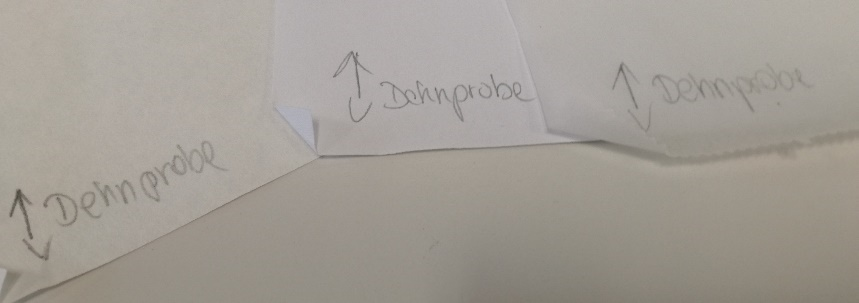 ↕ Dehnprobe
↕ Dehnprobe
↕ Dehnprobe